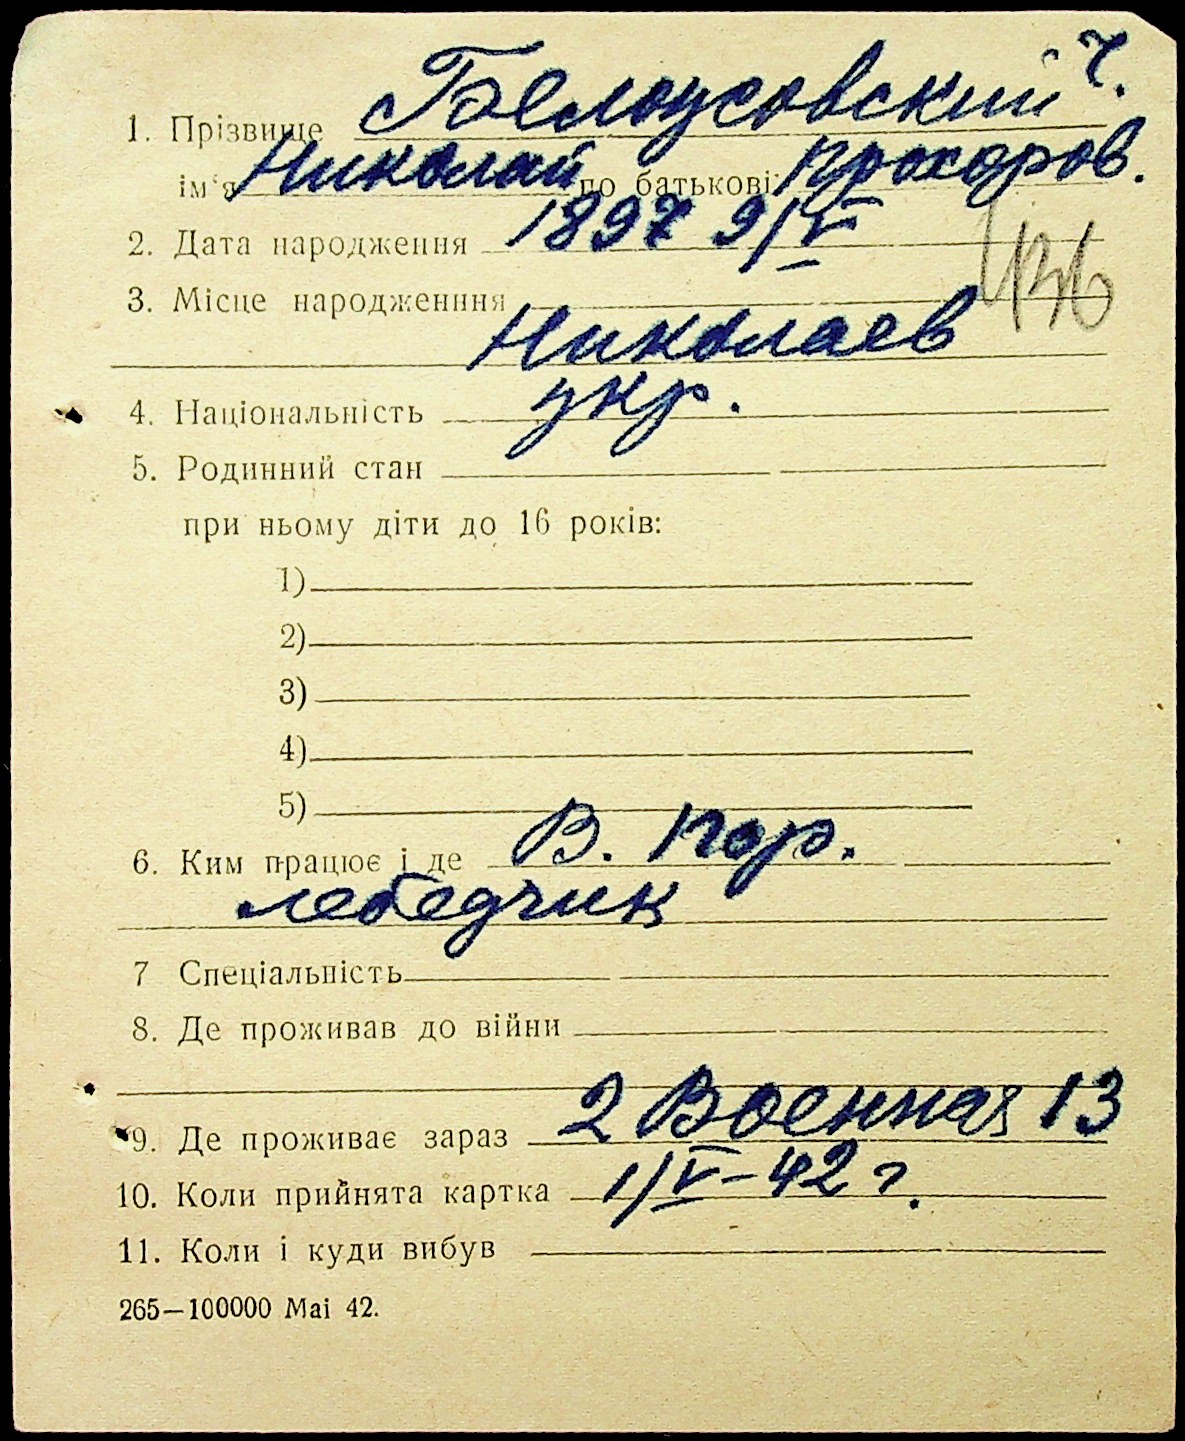 ч.
1. Прізвище Белоусовский
ім'я Николай по батькові Прохоров.
2. Дата народження 1897 9/V
136
3. Місце народженння
Николаев
4. Національність укр.
5. Родинний стан
при ньому діти до 16 років:
1)
2)
3)
4)
5)
6. Ким працює і де В. Пор.
лебедчик
7 Спеціальність
8. Де проживав до війни
9. Де проживає зараз 2 Военная 13
10. Коли прийнята картка 1/V-42 г.
11. Коли і куди вибув
265—100000 Mai 42.